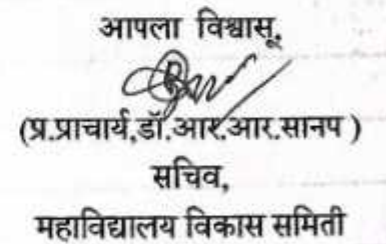 आपला विश्वासू,
(प्र.प्राचार्य,डॉ.आर.आर.सानप )
सचिव,
महाविद्यालय विकास समिती